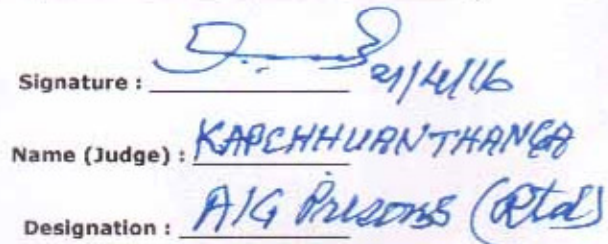 Signature : 21/4/16
Name (Judge) : KAPCHHUANTHANGA
Designation : AIG Prisons (Rtd)